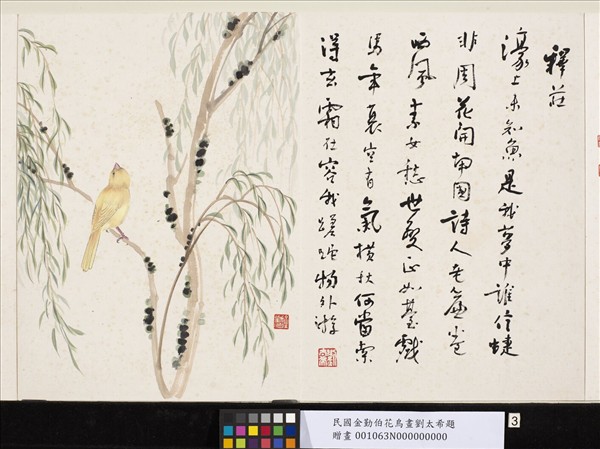 釋莊
濠上未知魚是我夢中誰信蝶
非周花開南國詩人老簾卷
西風素女愁世變正如臺戲
馬年衰豈有氣橫秋何當索
得玄霜 容我蹉跎物外游
民國金勤伯花鳥畫劉太希題
贈畫 001063N000000000
3